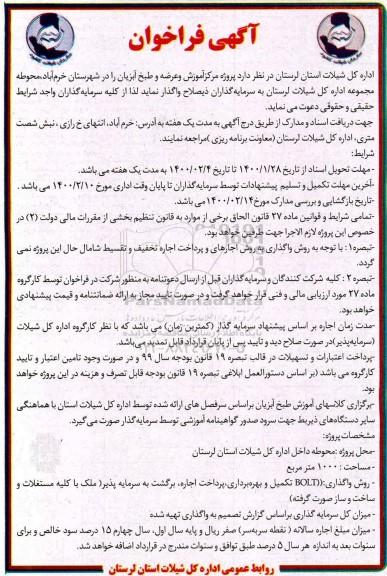 آگهی فراخوان
اداره کل شیلات استان لرستان در نظر دارد پروژه مرکز آموزش و عرضه و طبخ آبزیان را در شهرستان خرم‌آباد، محوطه
مجموعه اداره کل شیلات لرستان به سرمایه‌گذاران ذیصلاح واگذار نماید لذا از کلیه سرمایه‌گذاران واجد شرایط
حقیقی و حقوقی دعوت می نماید.
جهت دریافت اسناد و مدارک از طریق درج آگهی به مدت یک هفته به آدرس: خرم آباد، انتهای خ رازی ، نبش شصت
متری، اداره کل شیلات لرستان (معاونت برنامه ریزی) مراجعه نمایند.
شرایط:
- مهلت تحویل اسناد از تاریخ ۱۴۰۰/۱/۲۸ تا تاریخ ۱۴۰۰/۰۲/۴ به مدت یک هفته می باشد.
-آخرین مهلت تکمیل و تسلیم پیشنهادات توسط سرمایه‌گذاران تا پایان وقت اداری مورخ ۱۴۰۰/۲/۱۰ می باشد .
-تاریخ بازگشایی و بررسی مدارک مورخ ۱۴۰۰/۰۲/۱۴ می باشد.
-تمامی شرایط و قوانین ماده ۲۷ قانون الحاق برخی از موارد به قانون تنظیم بخشی از مقررات مالی دولت (۲) در
خصوص این پروژه لازم الاجرا جهت طرفین خواهد بود.
-تبصره۱: با توجه به روش واگذاری به روش اجاره‌ای و پرداخت اجاره تخفیف و تقسیط شامل حال این پروژه نمی
گردد.
-تبصره ۲ : کلیه شرکت کنندگان و سرمایه گذاران قبل از ارسال دعوتنامه به منظور شرکت در فراخوان توسط کارگروه
ماده ۲۷ مورد ارزیابی مالی و فنی قرار خواهد گرفت و در صورت تأیید مجاز به ارائه ضمانتنامه و قیمت پیشنهادی
خواهد بود.
-مدت زمان اجاره بر اساس پیشنهاد سرمایه گذار (کمترین زمان) می باشد که با نظر کارگروه اداره کل شیلات
(سرمایه‌پذیر) در صورت صلاح دید و تأیید پس از پایان قرارداد قابل تمدید می‌باشد.
-پرداخت اعتبارات و تسهیلات در قالب تبصره ۱۹ قانون بودجه سال ۹۹ و در صورت وجود تامین اعتبار و تایید
کارگروه می باشد (بر اساس دستورالعمل ابلاغی تبصره ۱۹ قانون بودجه قابل تصرف و هزینه در این پروژه خواهد
بود.
-برگزاری کلاسهای آموزش طبخ آبزیان براساس سرفصل های ارائه شده توسط اداره کل شیلات استان با هماهنگی
سایر دستگاه‌های ذیربط جهت سرود صدور گواهینامه آموزشی توسط سرمایه‌گذار صورت می‌گیرد.
مشخصات پروژه:
-محل پروژه :محوطه داخل اداره کل شیلات استان لرستان
- مساحت : ۱۰۰۰ متر مربع
- روش واگذاری:((BOLT تکمیل و بهره‌برداری،پرداخت اجاره، برگشت به سرمایه پذیر( ملک با کلیه مستغلات و
ساخت و ساز صورت گرفته)
- میزان کل سرمایه گذاری براساس گزارش تصمیم به واگذاری تهیه شده
- میزان مبلغ اجاره سالانه ( نقطه سربه‌سر) صفر ریال و پایه سال اول، سال چهارم ۱۵ درصد سود خالص و برای
سنوات بعد به اندازه هر سال ۵ درصد طبق توافق و سنوات مندرج در قرارداد اضافه خواهد شد.
روابط عمومی اداره کل شیلات استان لرستان